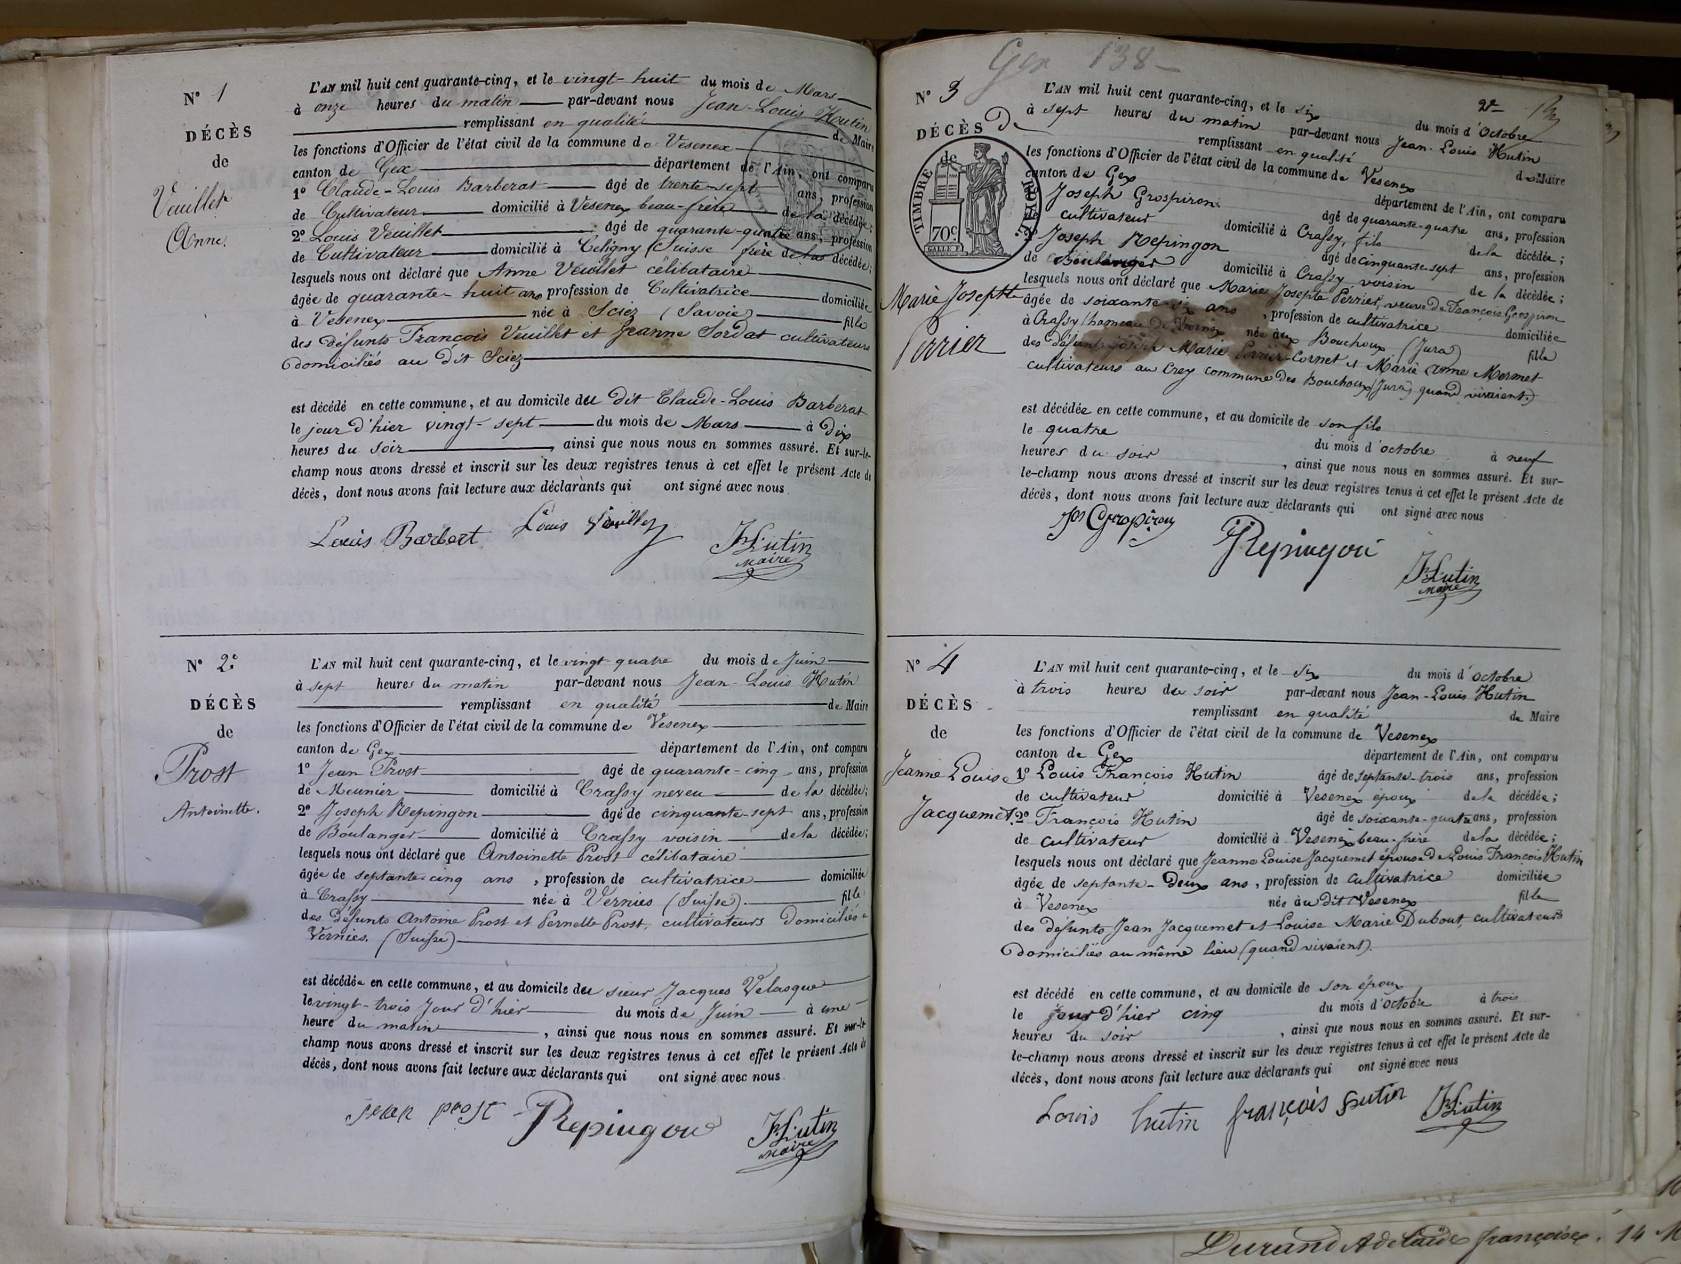 N° 1
DÉCÈS
de
Veuillet
Anne.
L'AN mil huit cent quarante-cinq, et le vingt-huit du mois de Mars
à onze heures du matin par-devant nous Jean-Louis Hutin
remplissant en qualité de Maire
les fonctions d'Officier de l'état civil de la commune de Vesenex
canton de Gex département de l'Ain, ont comparu
1° Claude-Louis Barberat âgé de trente-sept ans, profession
de Cultivateur domicilié à Vesenex beau-frère de la décédée;
2° Louis Veuillet âgé de quarante-quatre ans, profession
de Cultivateur domicilié à Céligny (Suisse frère de la décédée;
lesquels nous ont déclaré que Anne Veuillet célibataire
âgée de quarante-huit ans, profession de Cultivatrice domiciliée
à Vesenex née à Sciez (Savoie) fille
des défunts François Veuillet et Jeanne Sordat cultivateurs
domiciliés au dit Sciez
est décédé en cette commune, et au domicile du dit Claude-Louis Barberat
le jour d'hier vingt-sept du mois de Mars à dix
heures du soir, ainsi que nous nous en sommes assuré. Et sur-le-
champ nous avons dressé et inscrit sur les deux registres tenus à cet effet le présent Acte de
décès, dont nous avons fait lecture aux déclarants qui ont signé avec nous
Louis Barbert Louis Veuillet JLHutin
Maire
N° 2.
DÉCÈS
de
Prost
Antoinette.
L'AN mil huit cent quarante-cinq, et le vingt quatre du mois de Juin
à sept heures du matin par-devant nous Jean-Louis Hutin
remplissant en qualité de Maire
les fonctions d'Officier de l'état civil de la commune de Vesenex
canton de Gex département de l'Ain, ont comparu
1° Jean Prost âgé de quarante-cinq ans, profession
de Meunier domicilié à Crassy neveu de la décédée;
2° Joseph Repingon âgé de cinquante sept ans, profession
de Boulanger domicilié à Crassy voisin de la décédée;
lesquels nous ont déclaré que Antoinette Prost célibataire
âgée de septante-cinq ans, profession de cultivatrice domiciliée
à Crassy née à Vernies (Suisse). fille
des défunts Antoine Prost et Pernette Prost, cultivateurs domiciliés à
Vernies. (Suisse)
est décédée en cette commune, et au domicile du sieur Jacques Velasque
le vingt-trois jour d'hier du mois de Juin à une
heure du matin, ainsi que nous nous en sommes assuré. Et sur-le-
champ nous avons dressé et inscrit sur les deux registres tenus à cet effet le présent Acte de
décès, dont nous avons fait lecture aux déclarants qui ont signé avec nous
jean prost Repingon JLHutin
Maire
Gex 138
N° 3
DÉCÈS De
de
TIMBRE ROYAL
70c
Marie Josephte
Perrier
L'AN mil huit cent quarante-cinq, et le six du mois d'Octobre
à sept heures du matin par-devant nous Jean-Louis Hutin
remplissant en qualité de Maire
les fonctions d'Officier de l'état civil de la commune de Vesenex
canton de Gex département de l'Ain, ont comparu
Joseph Grospiron âgé de quarante-quatre ans, profession
cultivateur domicilié à Crassy, fils de la décédée;
Joseph Repingon âgé de cinquante sept ans, profession
de Boulanger domicilié à Crassy voisin de la décédée;
lesquels nous ont déclaré que Marie Josepte Perrier, veuve de François Grospiron
âgée de soixante-six ans, profession de cultivatrice domiciliée
à Crassy (hameau de Vesenex née aux Bouchoux (Jura) fille
des défunts Joseph Marie Perrier-Cornet et Marie Anne Mermet
cultivateurs au Crey commune des Bouchoux (Jura) quand vivaient.)
est décédée en cette commune, et au domicile de son fils
le quatre du mois d'octobre à neuf
heures du soir, ainsi que nous nous en sommes assuré. Et sur-
le-champ nous avons dressé et inscrit sur les deux registres tenus à cet effet le présent Acte de
décès, dont nous avons fait lecture aux déclarants qui ont signé avec nous
Jh Grospiron Repingon JLHutin
Maire
N° 4
DÉCÈS
de
Jeanne Louise
Jacquemet
L'AN mil huit cent quarante-cinq, et le six du mois d'octobre
à trois heures du soir par-devant nous Jean-Louis Hutin
remplissant en qualité de Maire
les fonctions d'Officier de l'état civil de la commune de Vesenex
canton de Gex département de l'Ain, ont comparu
1° Louis François Hutin âgé de septante-trois ans, profession
de cultivateur domicilié à Vesenex époux de la décédée;
2° François Hutin âgé de soixante-quatre ans, profession
de cultivateur domicilié à Vesenex beau-frère de la décédée;
lesquels nous ont déclaré que Jeanne Louise Jacquemet épouse de Louis François Hutin
âgée de septante-deux ans, profession de cultivatrice domiciliée
à Vesenex née au dit Vesenex fille
des défunts Jean Jacquemet et Louise Marie Dubout, cultivateurs
domiciliés au même lieu (quand vivaient).
est décédé en cette commune, et au domicile de son époux
le jour d'hier cinq du mois d'octobre à trois
heures du soir, ainsi que nous nous en sommes assuré. Et sur-
le-champ nous avons dressé et inscrit sur les deux registres tenus à cet effet le présent Acte de
décès, dont nous avons fait lecture aux déclarants qui ont signé avec nous
Louis hutin françois hutin JLHutin
Durand Adelaïde françoise. 14 M